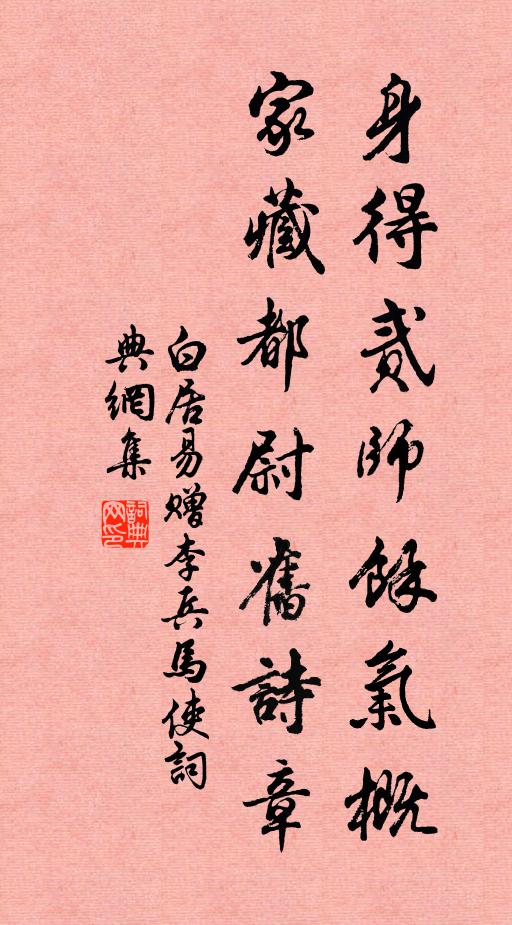 身得貳師餘氣概
家藏都尉舊詩章
白居易贈李兵馬使詞
典網集
詞典網印